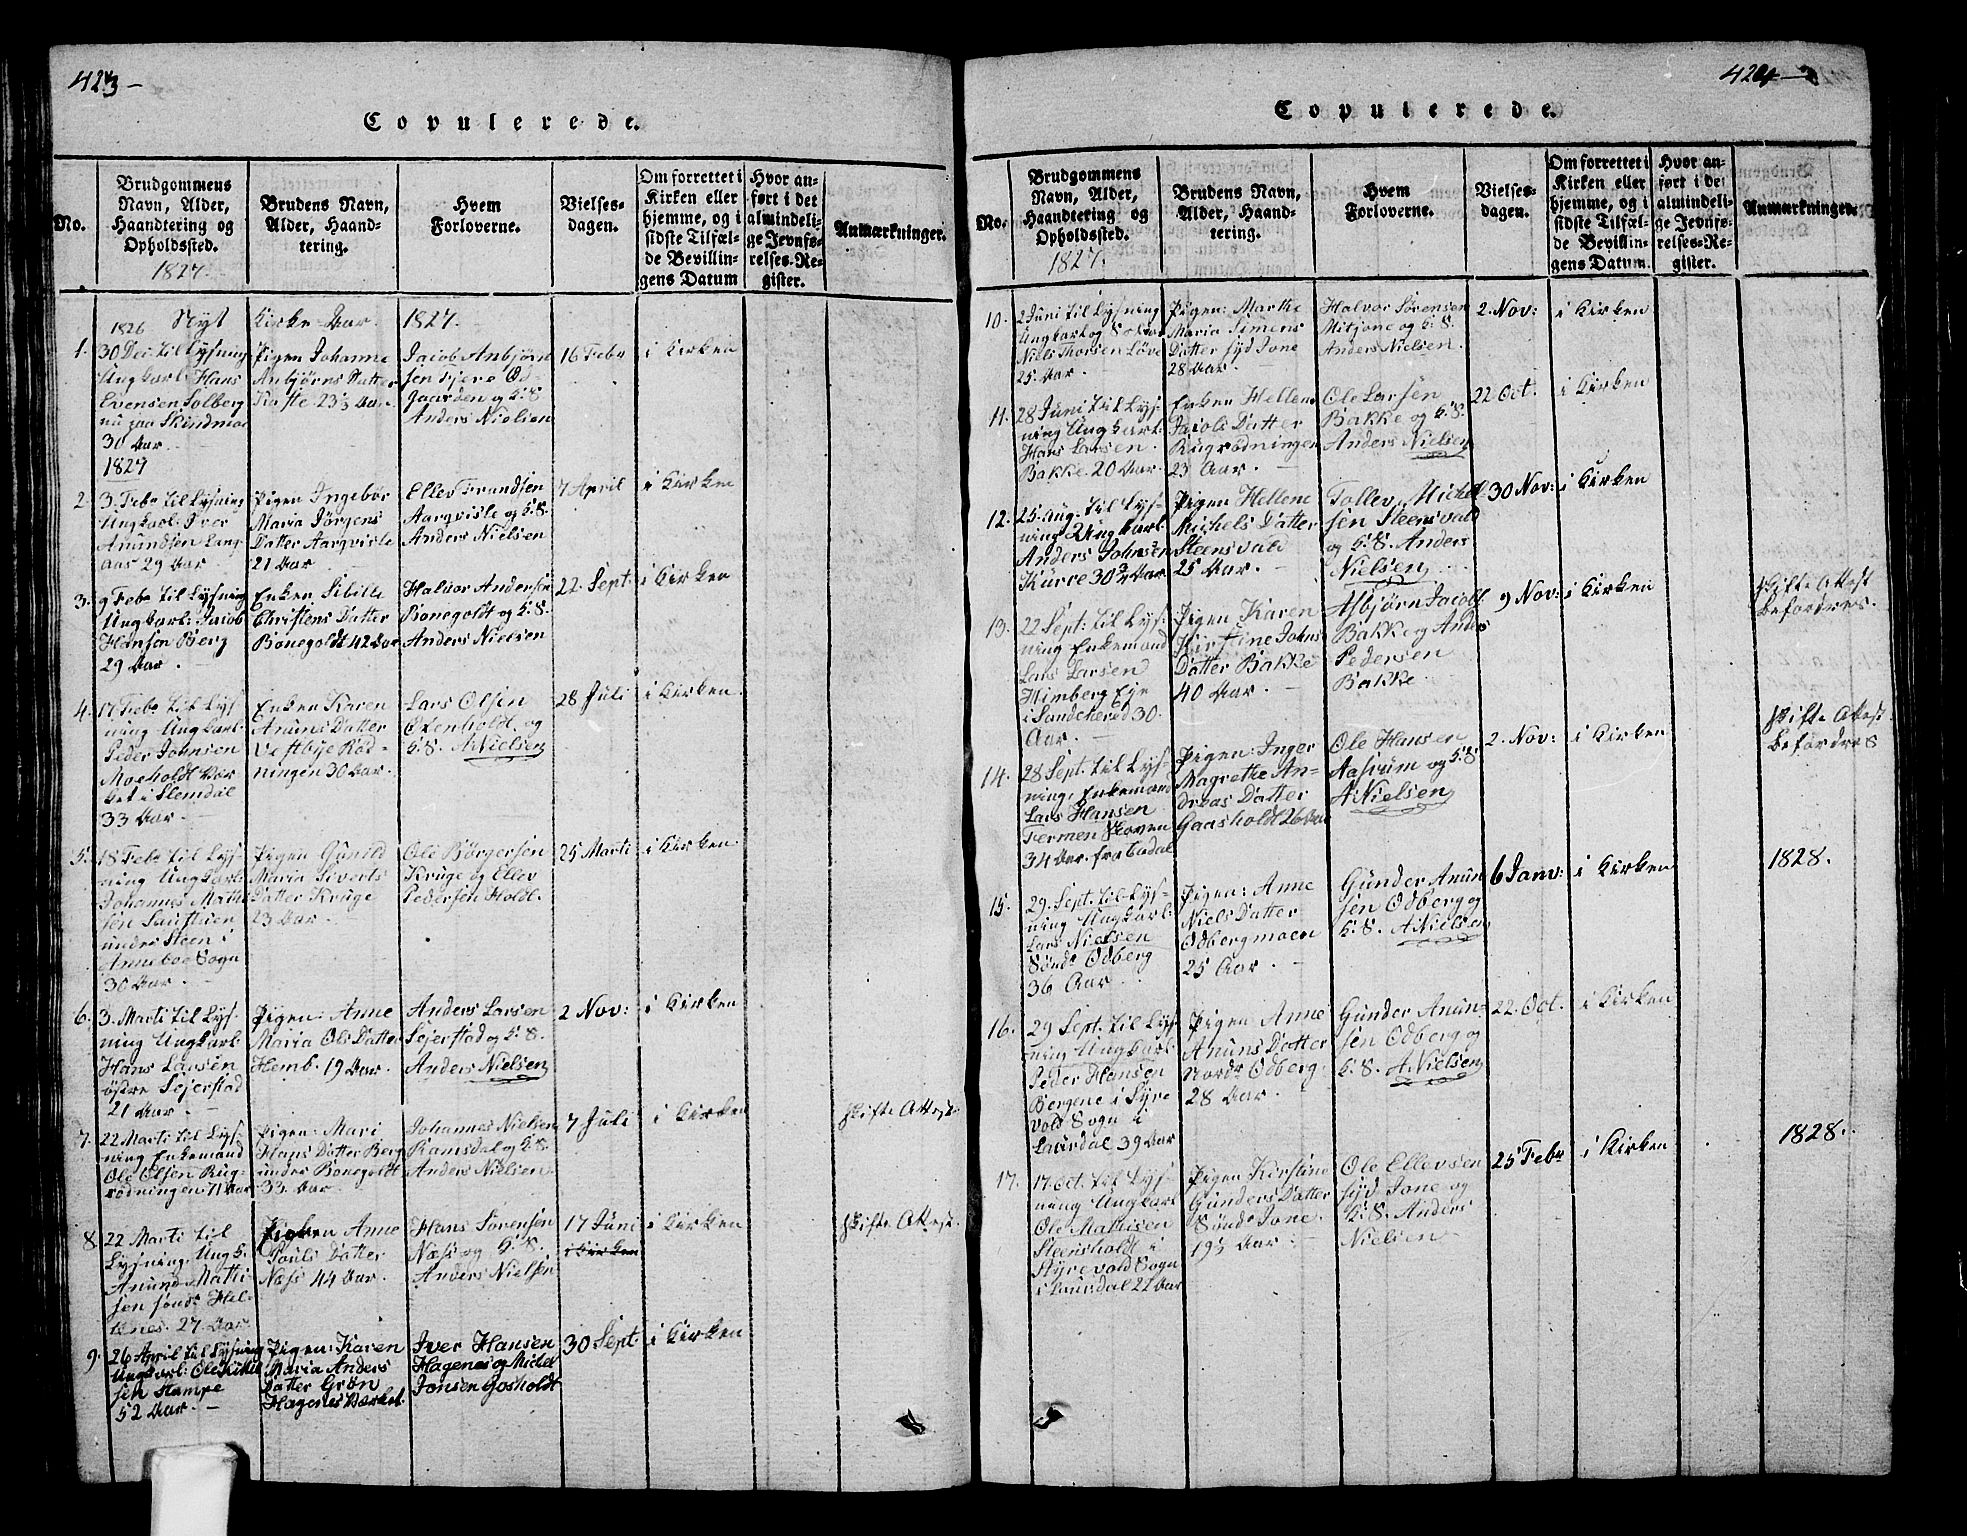 423 -
Copulerede.
No.
Brudgommens
Navn, Alder,
Haandtering og
Opholdssted.
1827.
Brudens Navn,
Alder, Haand-
tering.
Hvem
Forloverne.
Vielses-
dagen.
Om forrettet i
Kirken eller
hjemme, og i
sidste Tilfæl-
de Bevillin-
gens Datum
Hvor an-
ført i det
almindeli-
ge Jevnfø-
relses-Re-
gister.
Anmærkninger.
1826 Nyt Kirke-Aar. 1827.
1.
30 Dec: til Lysning
Ungkarl: Hans
Evensen Solberg
nu paa Skindmoe
30 Aar.
1827
Pigen Johanne
Anbjørns Datter
23½ Aar.
Jacob Anbjørn
sen
og S: 8.
Anders Nielsen
16 Febr
i Kirken
2.
3. Febr til Lysning
Ungkarl: Iver
Anundsen Lang-
aas 29 Aar
Pigen Ingebor
Maria Jørgens
Datter Aarqvisle
21 Aar
Ellev Frandsen
Aarqvisle og S: 8.
Anders Nielsen
7 April
i Kirken
3.
9 Febr til Lysning
Ungkarl: Jacob
Hansen Berg
29 Aar.
Enken Sibille
Christens Datter
Bonegoldt 42 Aar
Halvor Andersen
Bonegoldt og S: 8.
Anders Nielsen
22. Sept:
i Kirken
4.
17 Febr til Lys
ning Ungkarl
Peder Johnsen
Moeholdt Vær
ket i Slemdal
33 Aar.
Enken Karen
Anuns Datter
Vestbye Rød-
ningen 30 Aar.
Lars Olsen
Oxenholdt og
S: 8. A Nielsen
28 Juli
i Kirken.
5.
18 Febr til Lys-
ning Ungkarl
Johannes Mathi
sen
under Steen i
Anneboe Sogn
30 Aar.
Pigen Gunild
Maria Siverts
Datter Kruge
23 Aar.
Ole Børgersen
Kruge og Ellev
Pedersen Holdt.
25 Marti
i Kirken
6.
3. Marti til Lys-
ning Ungkarl
Hans Larsen
østre Sejerstad
21 Aar.
Pigen: Anne
Maria Ols Datter
Hemb. 19 Aar.
Anders Larsen
Sejerstad og S: 8.
Anders Nielsen
2 Nov:
i Kirken
7.
22 Marti til Lys-
ning Enkemand
Ole Olsen Rug-
rødningen. 71 Aar
Pigen: Mari
Hans Datter Berg
under Bonegoldt
33 Aar
Johannes Nielsen
Ramsdal og S: 8
Anders Nielsen
7 Juli
i Kirken
skifte Attest.
8
22 Marti til
Lysning. Ungk.
Anund Mathi-
sen sønd: Hel-
Enes. 27 Aar
Anne
Pouls Datter
Næss 44 Aar.
Hans Sørensen
Næs og S: 8.
Anders Nielsen
17 Juni
i Kirken
i Kirken
skifte Attest.
9.
26 April til Lysning
Ungkarl: Ole
sen Stampe
52 Aar.
Pigen: Karen
Maria Anders
Datter Grøn
Hagenes Værket.
Iver Hansen
Hagenes og Michel
Jonsen Gosholdt
30 Sept.
i Kirken
424
Copulerede.
No.
Brudgommens
Navn, Alder,
Haandtering og
Opholdssted.
1827.
Brudens Navn,
Alder, Haand-
tering.
Hvem
Forloverne.
Vielses-
dagen.
Om forrettet i
Kirken eller
hjemme, og i
sidste Tilfæl-
de Bevillin-
gens Datum.
Hvor an-
ført i det
almindeli-
ge Jevnfø-
relses-Re-
gister.
Anmærkninger.
10.
2 Juni til Lysning
Ungkarl og
Niels Thorsen Løve
25. Aar
Pigen: Marthe
Maria Simens
Datter syd Jone
28 Aar.
Halvor Sørensen
Mitjone og S: 8.
Anders Nielsen.
2. Nov:
i Kirken
11.
28 Juni til Lys-
ning Ungkarl.
Hans Larsen.
Bakke 20 Aar.
Enken Hellene
Jacobs Datter
Rugrødningen
23 Aar.
Ole Larsen
Bakke og S: 8.
Anders Nielsen
22 Oct.
i Kirken
12.
25. Aug. til Lys-
ning Ungkarl
Anders Johnsen
Kurre 30¾ Aar
Pigen Hellene
Michels Datter
Steensvald
25 Aar.
Tollev Michel
sen Steensvald
og S: 8. Anders
Nielsen
30 Nov:
i Kirken
13.
22 Sept: til Lys-
ning Enkemand
Lars Larsen
Himberg Eje
i Sandeherred 30.
Aar.
Pigen: Karen
Kirstine Johns
Datter Bakke
40 Aar.
Asbjørn Jacobs
Bakke og Anders
Pedersen
Bakke.
9 Nov:
i Kirken
skifte Attest
befordres.
14.
28 Sept. til Lys-
ning. Enkemand
Lars Hansen
34 Aar.
Pigen: Inger
Magrethe An-
dreas Datter
Gaasholdt 26 Aar
Ole Hansen
Aasrum og S: 8
A Nielsen
2. Nov:
i Kirken
skifte Attest
befordres
15.
29. Sept. til Lys-
ning Ungkarl:
Lars Nielsen
Sønd: Odberg
36 Aar.
Pigen: Anne
Niels Datter
Odbergmoen
25 Aar.
Gunder Anun
sen Odberg og
S: 8. A Nielsen
6 Janv:
i Kirken
1828.
16.
29 Sept. til Lys
ning Ungkarl
Peder Hansen
Bergene i Styre
vold Sogn i
Laurdal 39 Aar
Pigen Anne
Anuns Datter
Nordr Odberg.
28 Aar.
Gunder Anun-
sen Odberg og
S: 8. A Nielsen
22. Oct.
i Kirken
17.
17 Oct. til Lys-
ning Ungkarl
Ole Mathisen
Steensholdt i
Styrevold Sogn
i Laurdal 27 Aar
Pigen Kirstine
Gunders Datter
Sønd: Jone.
19½ Aar
Ole Ellevsen
syd Jone og
S: 8. Anders
Nielsen
25 Febr
i Kirken
1828.